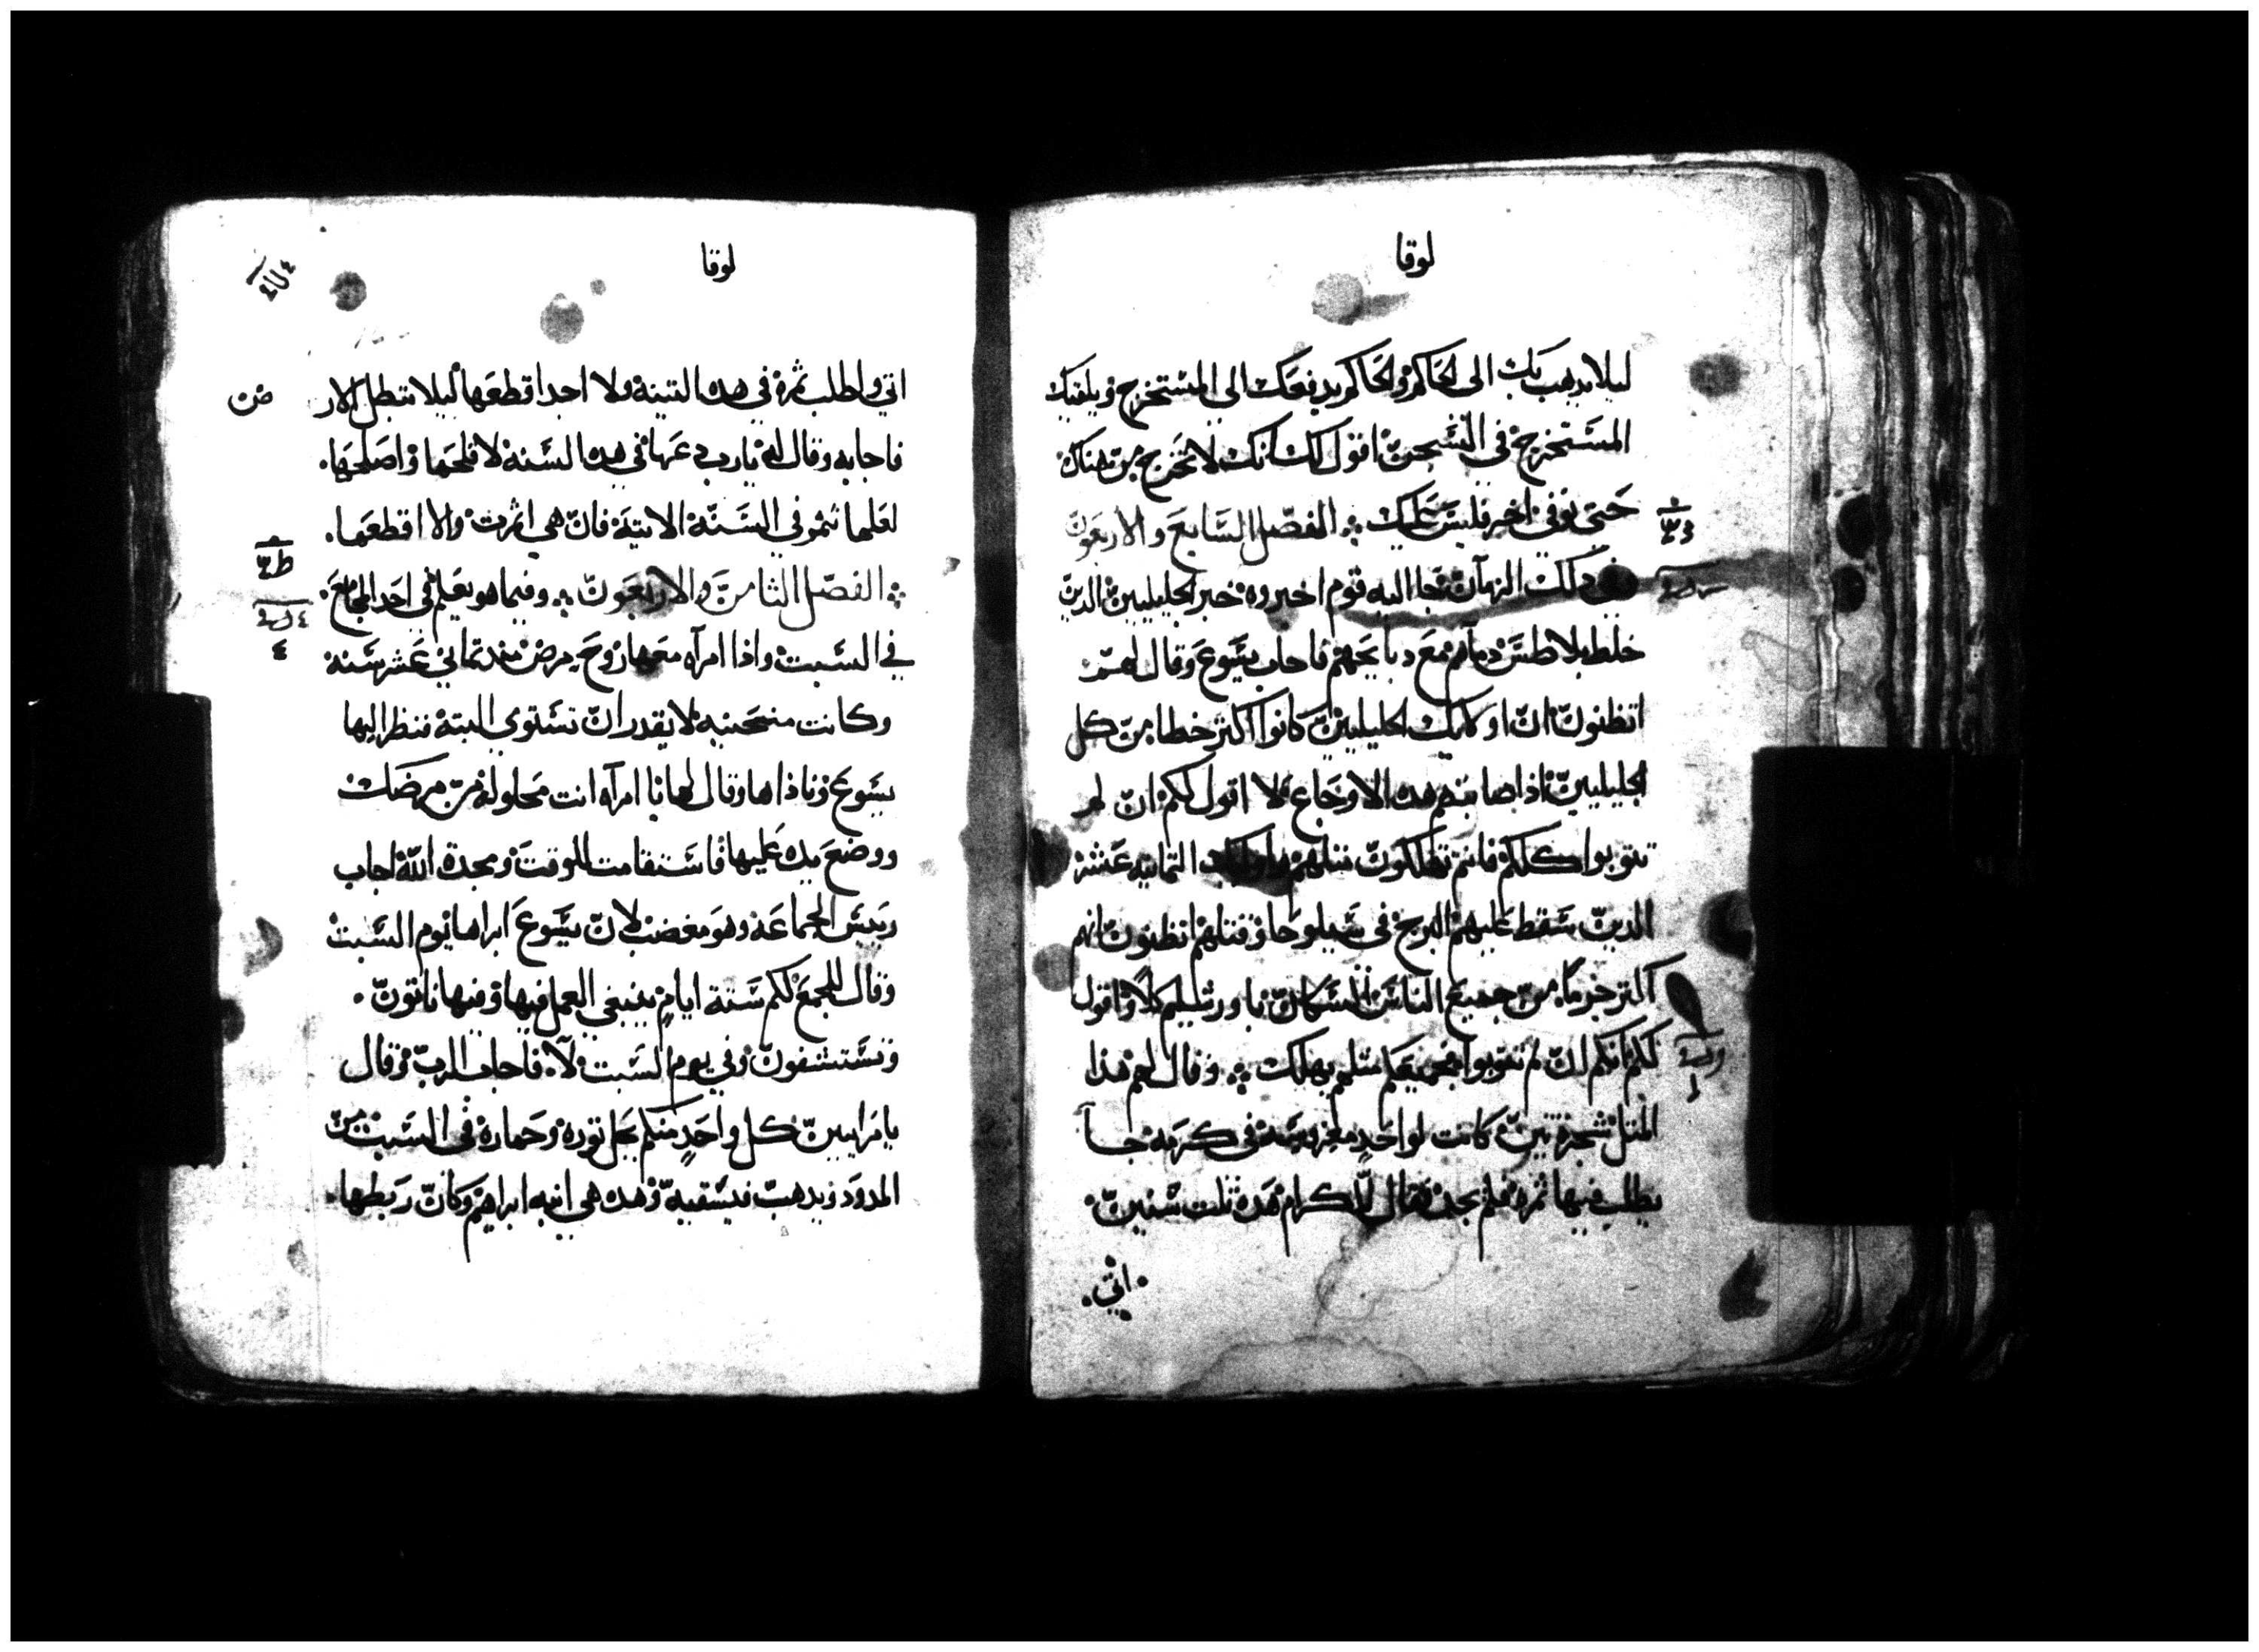 لوقا
ليلا يدهب بك الى الحاكم والحاكم يدفعك الى المستخرج ويلقيك
المستخرج في السجن اقول لك انك لا تخرج من هناك
حتى توفى اخر فليس عليك ܀ الفصل السابع والاربعون
في دلك الزمان جا اليه قوم اخبروه خبر الجليليين الدين
خلط بلاطس دماهم مع دبايحهم فاجاب يسوع وقال لهم
اتظنون ان اولايك الجليليين كانوا اكثر خطا من كل
الجليليين اذ اصابتهم هده الاوجاع كلا اقول لكم ان لم
تتوبوا كلكم فانتم تهلكون مثلهم واوليك التمانيه عشر
الدين سقط عليهم البرج في سيلوحا وقتلهم اتظنون انهم
اكتر جرما من جميع الناس السكان باورشليم كلا واقول
لكم انكم ان لم تتوبوا جميعكم مثلهم يهلك ܀ وقال لهم هذا
المتل شجرة تين كانت لواحد مغروسة في كرمه جا
يطلب فيها ثمره فلم يجد فقال للكرام هده ثلت سنين
اتي
لوقا
اتي واطلب ثمرة في هده التينة ولا اجد اقطعها ليلا تبطل الار
ض
فاجابه وقال له يارب دعها في هده السنة لافلحها واصلحها
لعلها تثمر في السنة الاتية فان هي اثمرت والا اقطعها
܀ الفصل الثامن والاربعون ܀ وفيما هو يعلم في احد المجامع
في السبت واذا امراه معها روح مرض مند تماني عشر سنة
وكانت منحنيه لا يقدر ان تستوي البتة فنظر اليها
يسوع وناداها وقال لها يا امراه انت محلولة من مرضك
ووضع يده عليها فاستقامت للوقت ومجدة الله اجاب
رييس الجماعة وهو مغضب لان يسوع ابراها يوم السبت
وقال للجمع لكم ستة ايام ينبغي العمل فيها وفيها تاتون
وتستشفون وفي يوم السبت لا فاجاب الرب وقال
يا مراييين كل واحد منكم يحل توره وحماره في السبت من
المدود ويدهب فيسقيه وهده هي ابنه ابراهيم وكان ربطها